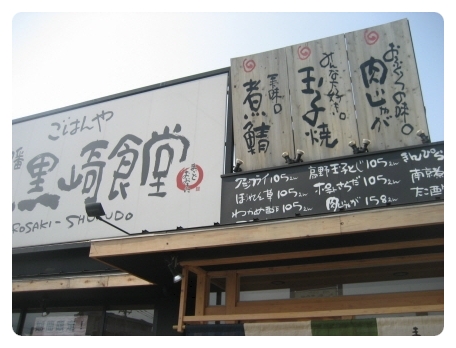 ごはんや
黒崎食堂
ROSAKI-SHOKUDO
おふくろの味
肉じゃが
みんな大好き
玉子焼
煮鯖
アジフライ 105えん
ほうれん草 105えん
わかめ酢 105えん
高野玉子とじ 105えん
105えん
肉じゃが 158えん
きんぴら